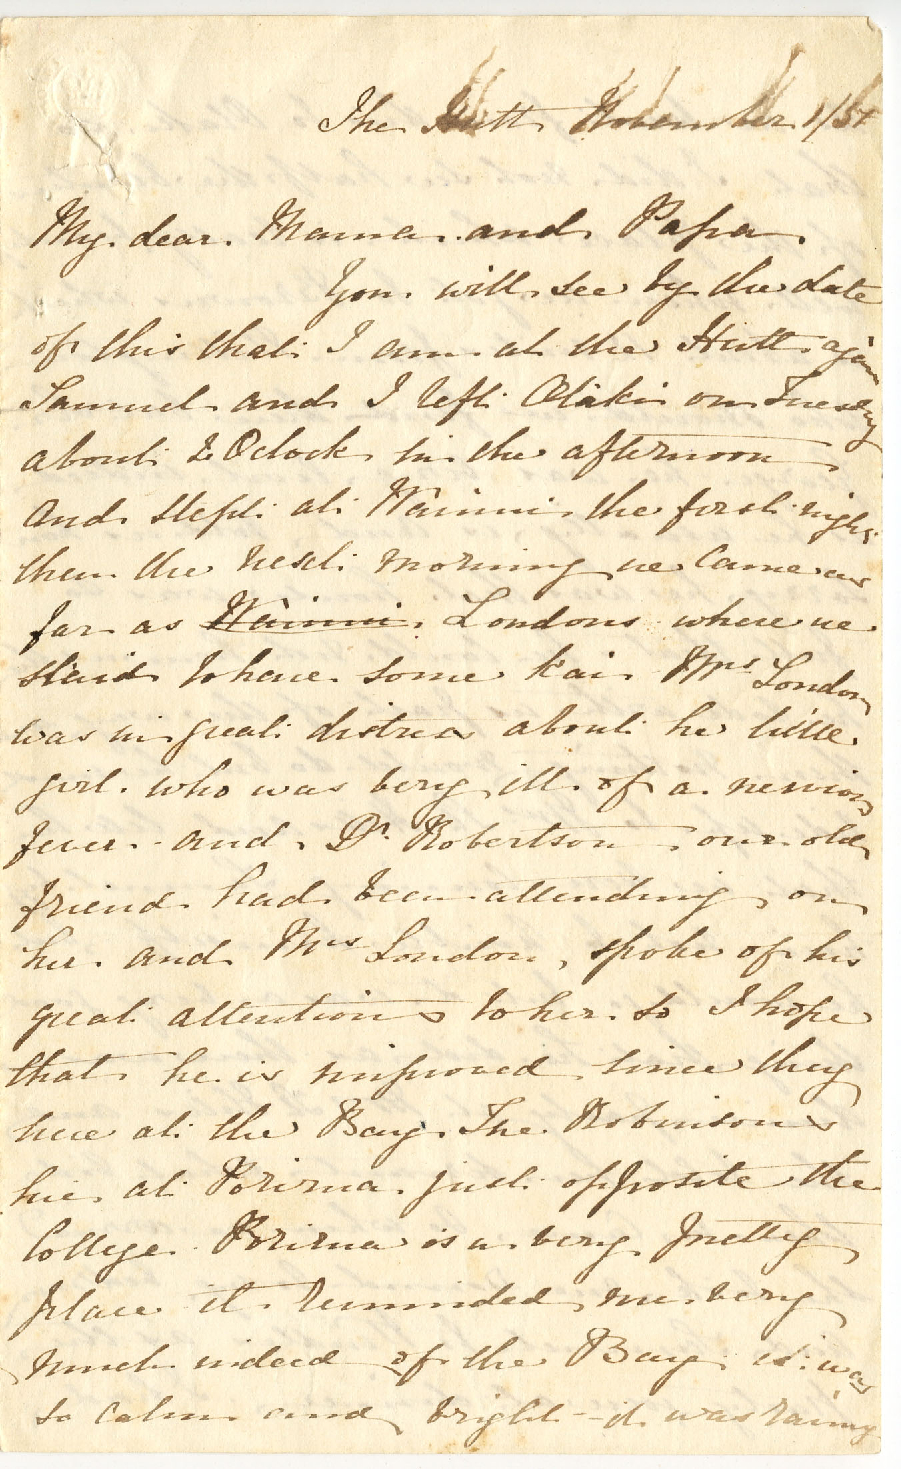 The Hutt November 1/51
My dear Mama and Papa
You will see by the date
of this that I am at the Hutt again
Samuel and I left Otaki on Tuesday
about 2 Oclock in the afternoon
and slept at Wainui the first night
then the next morning we came as
far as Wainui Londons where we
staid to have some kai Mrs London
was in great distress about her little
girl who was very ill of a nervious
fever and Dr Robertson our old
friend had been attending on
her and Mrs London, spoke of his
great attentions to her so I hope
that he is improved since they
live at the Bay. The Robinsons
live at Porirua just opposite the
College Porirua is a very pretty
place it reminded me very
much indeed of the Bay it was
so calm and bright – it was rainy